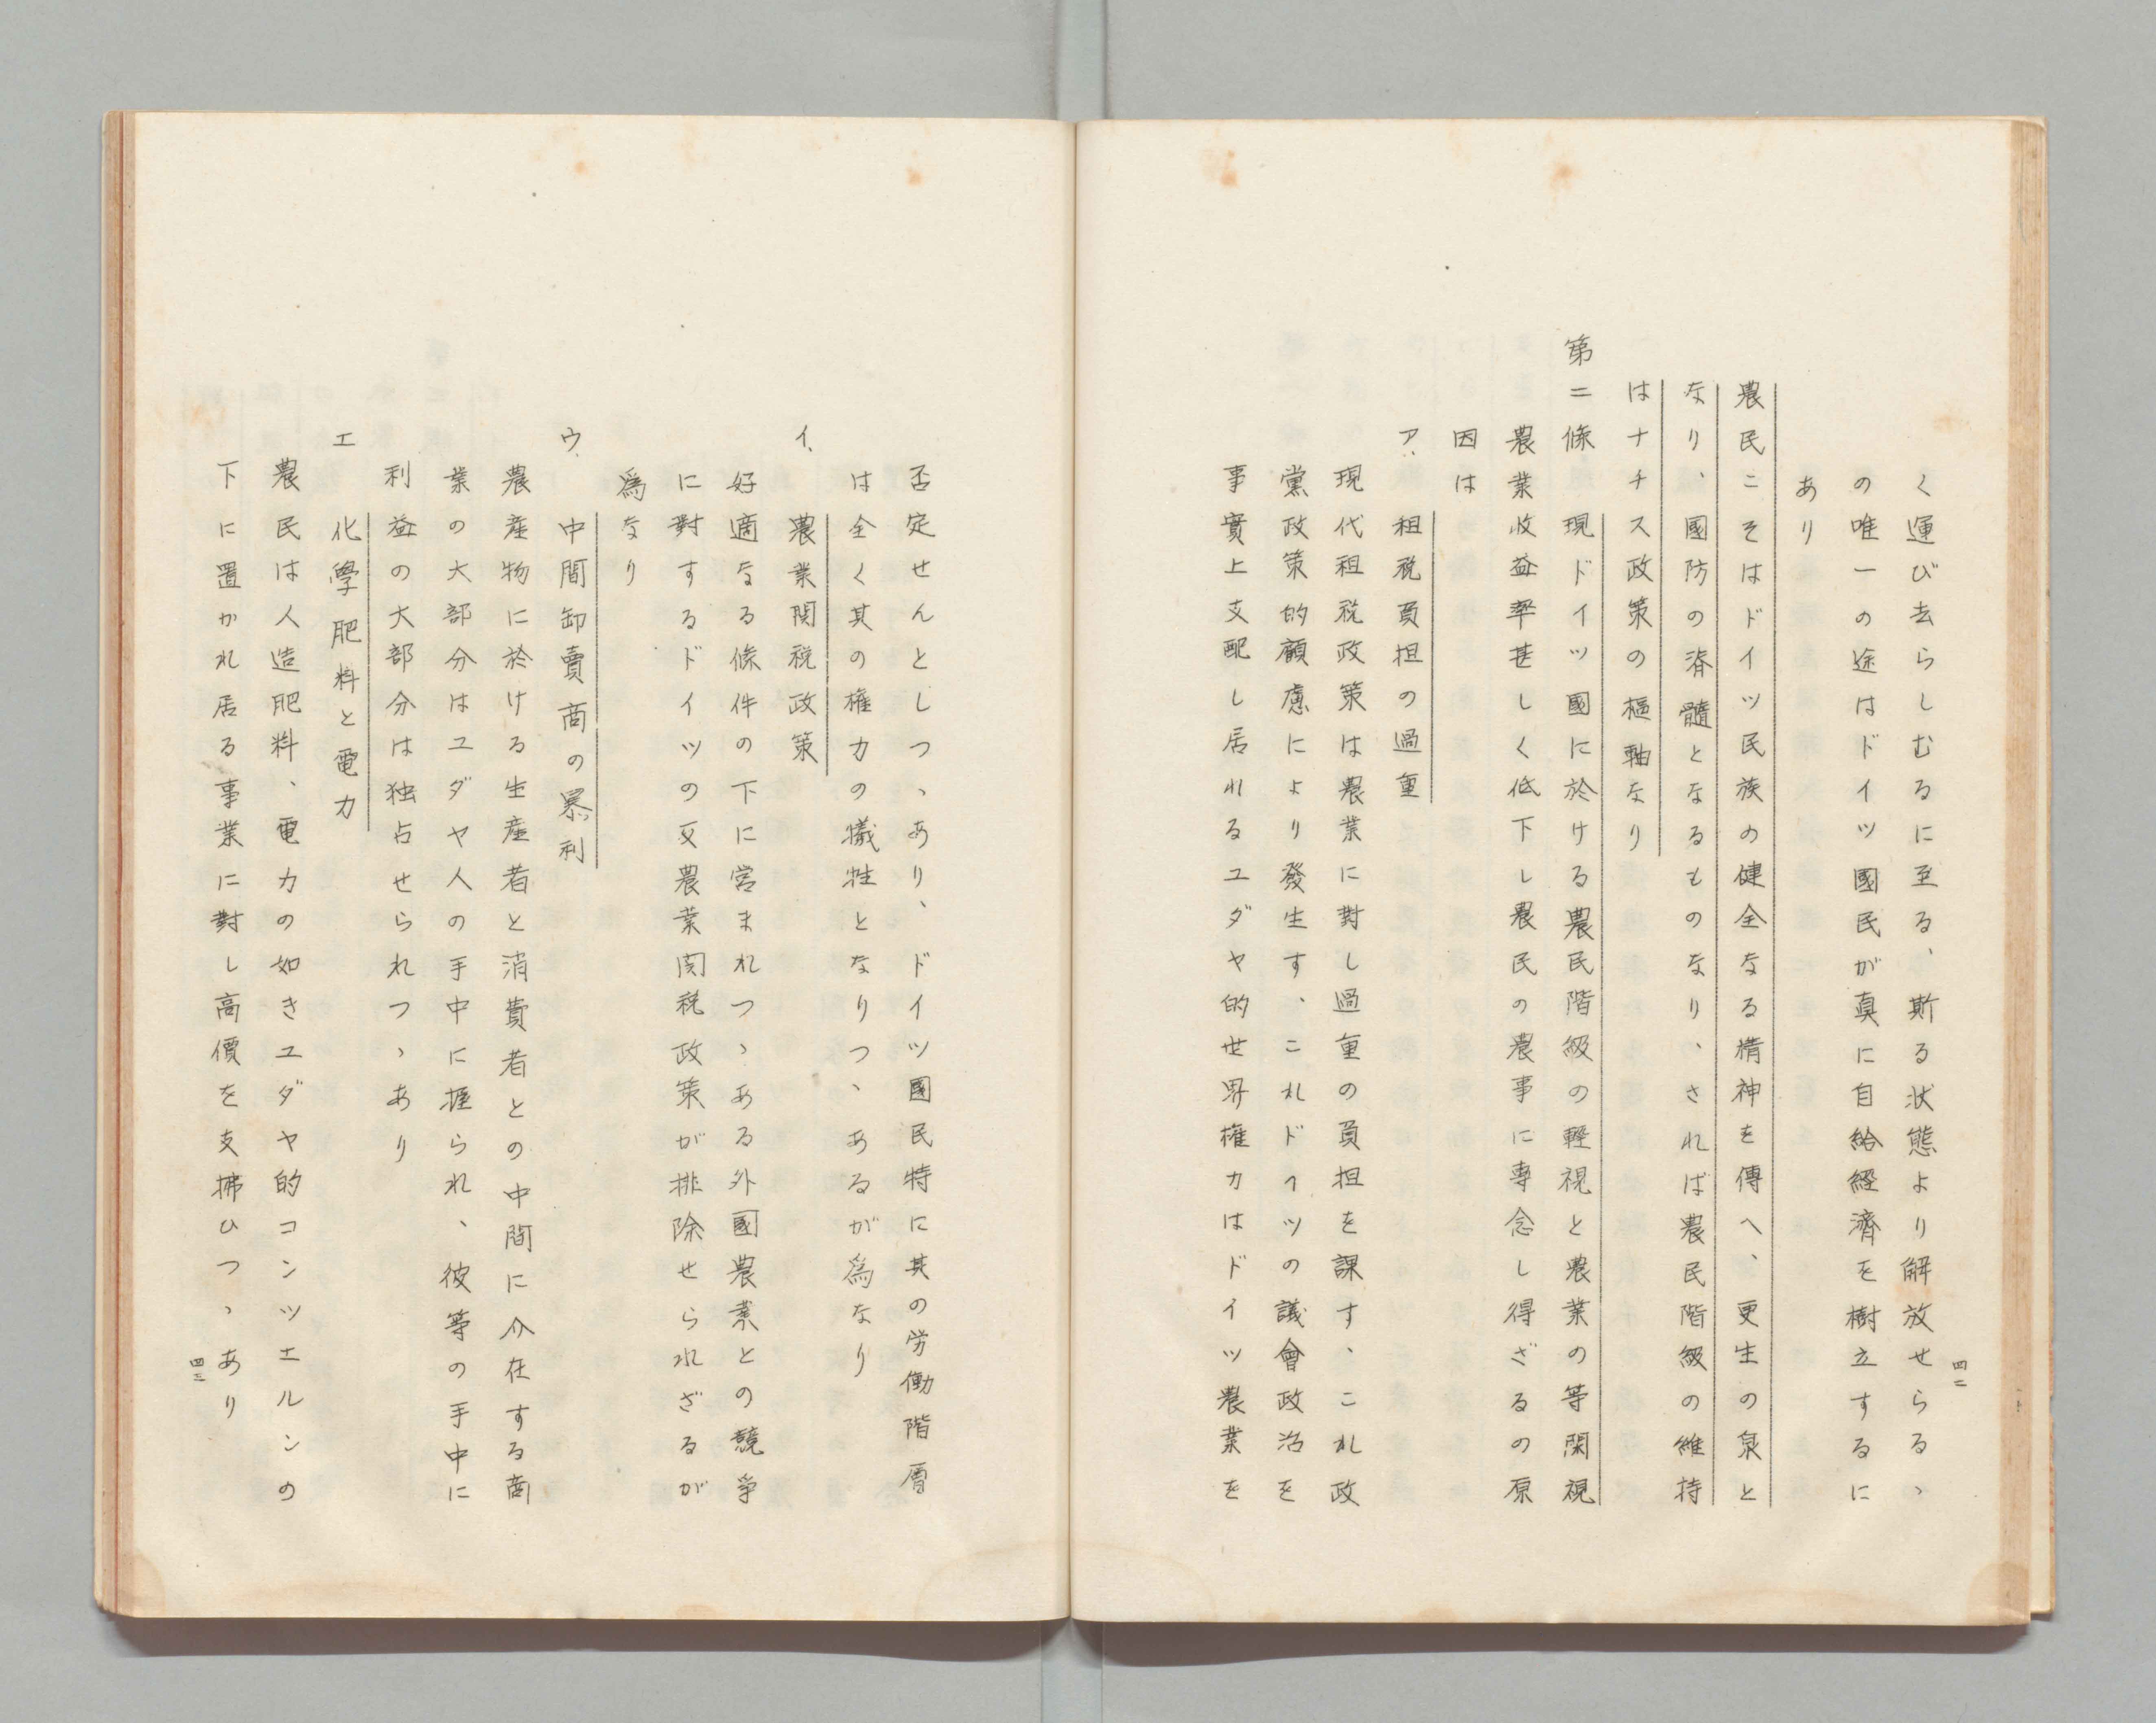 四二
く運び去らしむるに至る、斯る状態より解放せらるゝ
の唯一の途はドイツ國民が真に自給経濟を樹立するに
あり
農民こそはドイツ民族の健全なる精神を傳へ、更生の泉と
なり、國防の脊髓となるものなり、されば農民階級の維持
はナチス政策の樞軸なり
第二條　現ドイツ國に於ける農民階級の軽視と農業の等閑視
農業收益率甚しく低下し農民の農事に専念し得ざるの原
因は
ア、租税負担の過重
現代租税政策は農業に對し過重の負担を課す、これ政
黨政策的顧慮により發生す、これドイツの議會政治を
事實上支配し居れるユダヤ的世界権力はドイツ農業を
否定せんとしつゝあり、ドイツ國民特に其の労働階層
は全く其の権力の犠牲となりつゝあるが爲なり
イ、農業関税政策
好適なる條件の下に営まれつゝある外國農業との競爭
に對するドイツの反農業関税政策が排除せられざるが
爲なり
ウ、中間卸賣商の暴利
農産物に於ける生産者と消費者との中間に介在する商
業の大部分はユダヤ人の手中に握られ、彼等の手中に
利益の大部分は独占せられつゝあり
エ　化學肥料と電力
農民は人造肥料、電力の如きユダヤ的コンツエルンの
下に置かれ居る事業に對し高價を支拂ひつゝあり